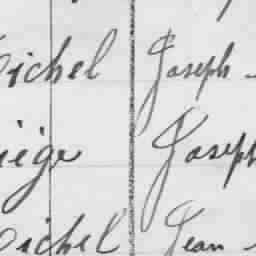 Michel Joseph
Liège Joseph
Michel Jean